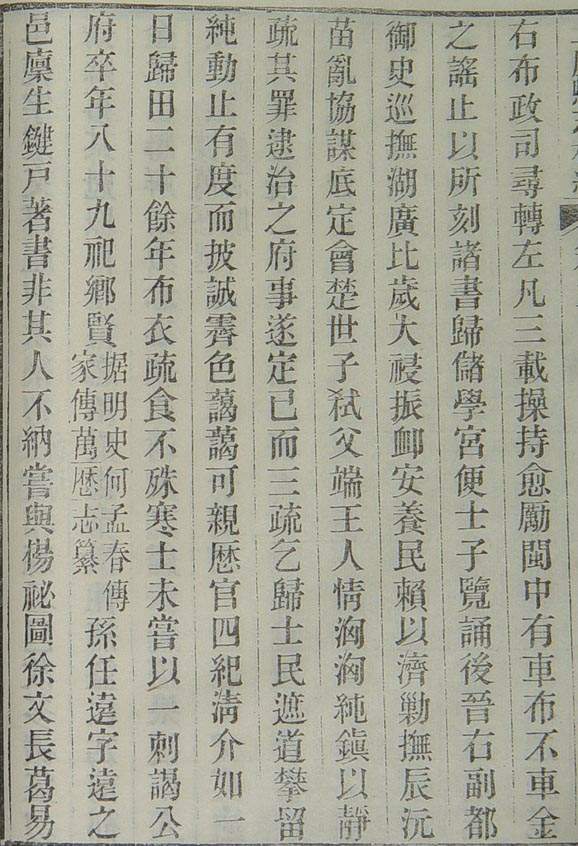 右布政司尋轉左凡三載操持愈勵閩中有車布不車金
之謠止以所刻諸書歸儲學宮便士子覽誦後晉右副都
御史巡撫湖廣比歲大祲振卹安養民賴以濟勦撫辰沅
苗亂協謀底定會楚世子弒父端王人情洶洶純鎮以靜
疏其罪逮治之府事遂定已而三疏乞歸士民遮道攀留
純動止有度而披誠霽色藹藹可親歷官四紀清介如一
日歸田二十餘年布衣疏食不殊寒士未嘗以一刺謁公
府卒年八十九祀鄉賢据明史何孟春傳家傳萬歷志纂孫任遠字遠之
邑廩生鍵戸著書非其人不納嘗與楊祕圖徐文長葛易